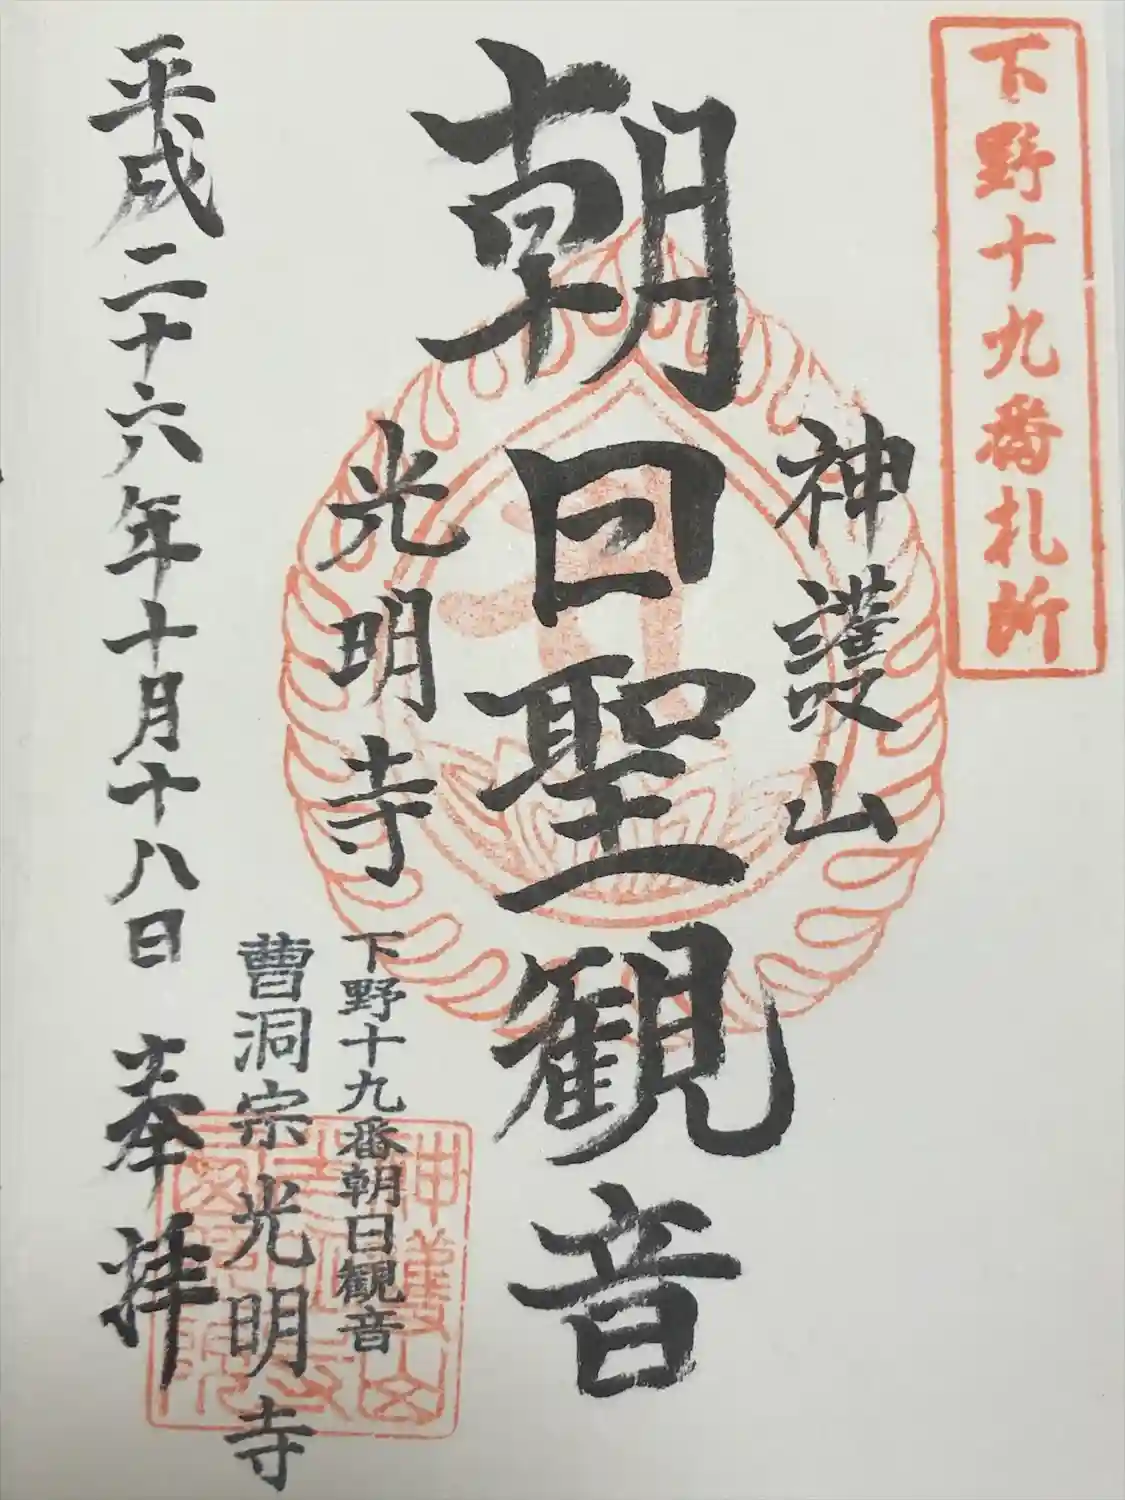 下野十九番札所
神護山
朝日聖観音
光明寺
下野十九番朝日観音
曹洞宗 光明寺
平成二十六年十月十八日 奉拝
神護山
光明寺